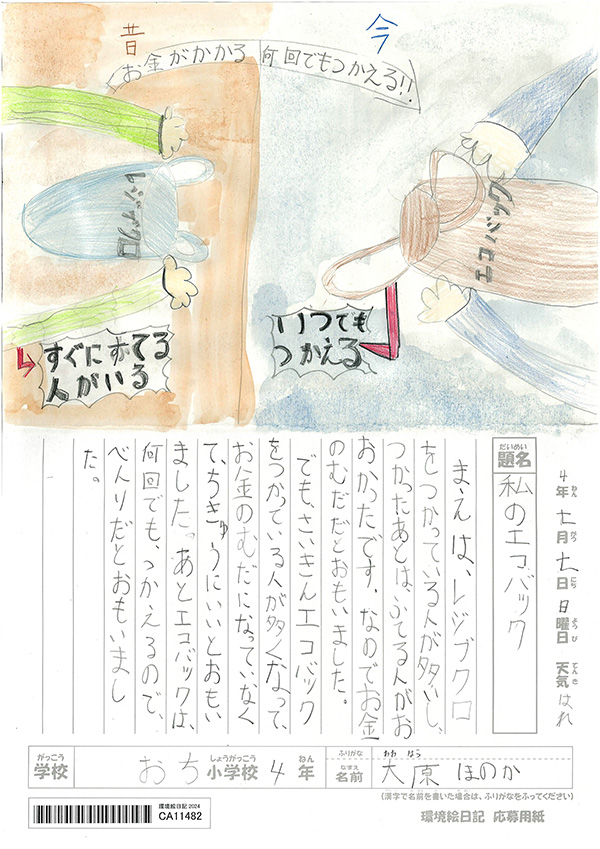 昔
今
お金がかかる
何回でもつかえる!!
レジブクロ
エコバック
すぐにすてる
人がいる
いつでも
つかえる
4年七月七日日曜日 天気はれ
ねん がつ にち ようび てんき
だいめい
題名
私のエコバック
まえは、レジブクロ
をつかっている人が多いし、
つかったあとは、すてる人がお
おかったです。なのでお金
のむだだとおもいました。
でも、さいきんエコバック
をつかっている人が多くなって、
お金のむだになっていなく
て、ちきゅうにいいとおもい
ました。あとエコバックは、
何回でも、つかえるので、
べんりだとおもいまし
た。
がっこう しょうがっこう ねん
学校 おち小学校4年
ふりがな おおはら
なまえ
名前 大原ほのか
(漢字で名前を書いた場合は、ふりがなをふってください)
環境絵日記2024
CA11482
環境絵日記 応募用紙